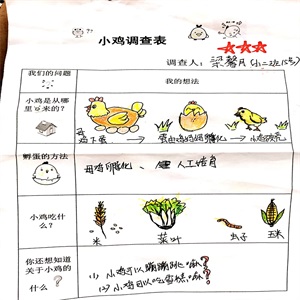 小鸡调查表
调查人：梁馨月（小二班15号）
我们的问题 我的想法
小鸡是从哪里来的？
鸡下蛋 蛋由鸡妈妈孵化 小鸡破壳
孵蛋的方法 母鸡孵化、人工培育
小鸡吃什么？
米 菜叶 虫子 玉米
你还想知道关于小鸡的什么？
(1) 小鸡可以蹦蹦跳吗？
(2) 小鸡可以吃